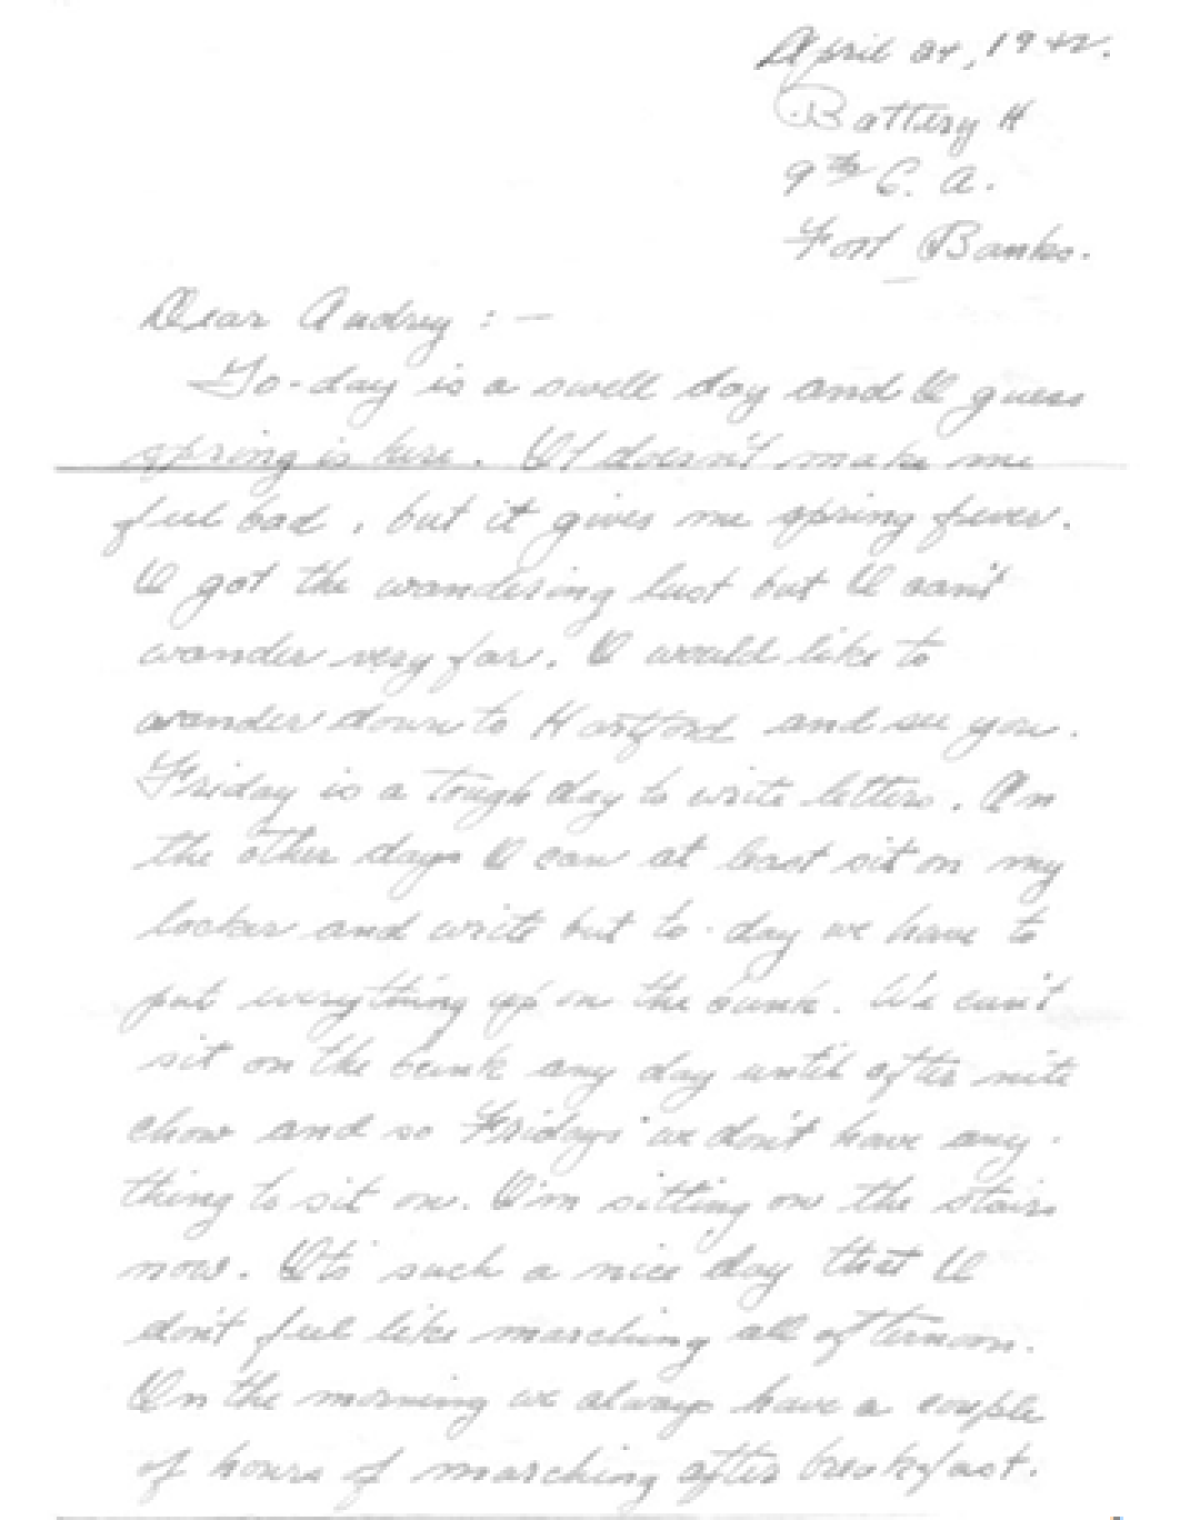 April 24, 1942.
Battery H
9th C. A.
Fort Banks.
Dear Audrey : —
To-day is a swell day and I guess
spring is here. It doesn't make me
feel bad, but it gives me spring fever.
I got the wandering lust but I can't
wander very far. I would like to
wander down to Hartford and see you.
Friday is a tough day to write letters. On
the other days I can at least sit on my
locker and write but to-day we have to
put everything up on the bunk. We can't
sit on the bunk any day until after nite
chow and so Fridays we don't have any-
thing to sit on. I'm sitting on the stairs
now. It's such a nice day that I
don't feel like marching all afternoon.
In the morning we always have a couple
of hours of marching after breakfast.